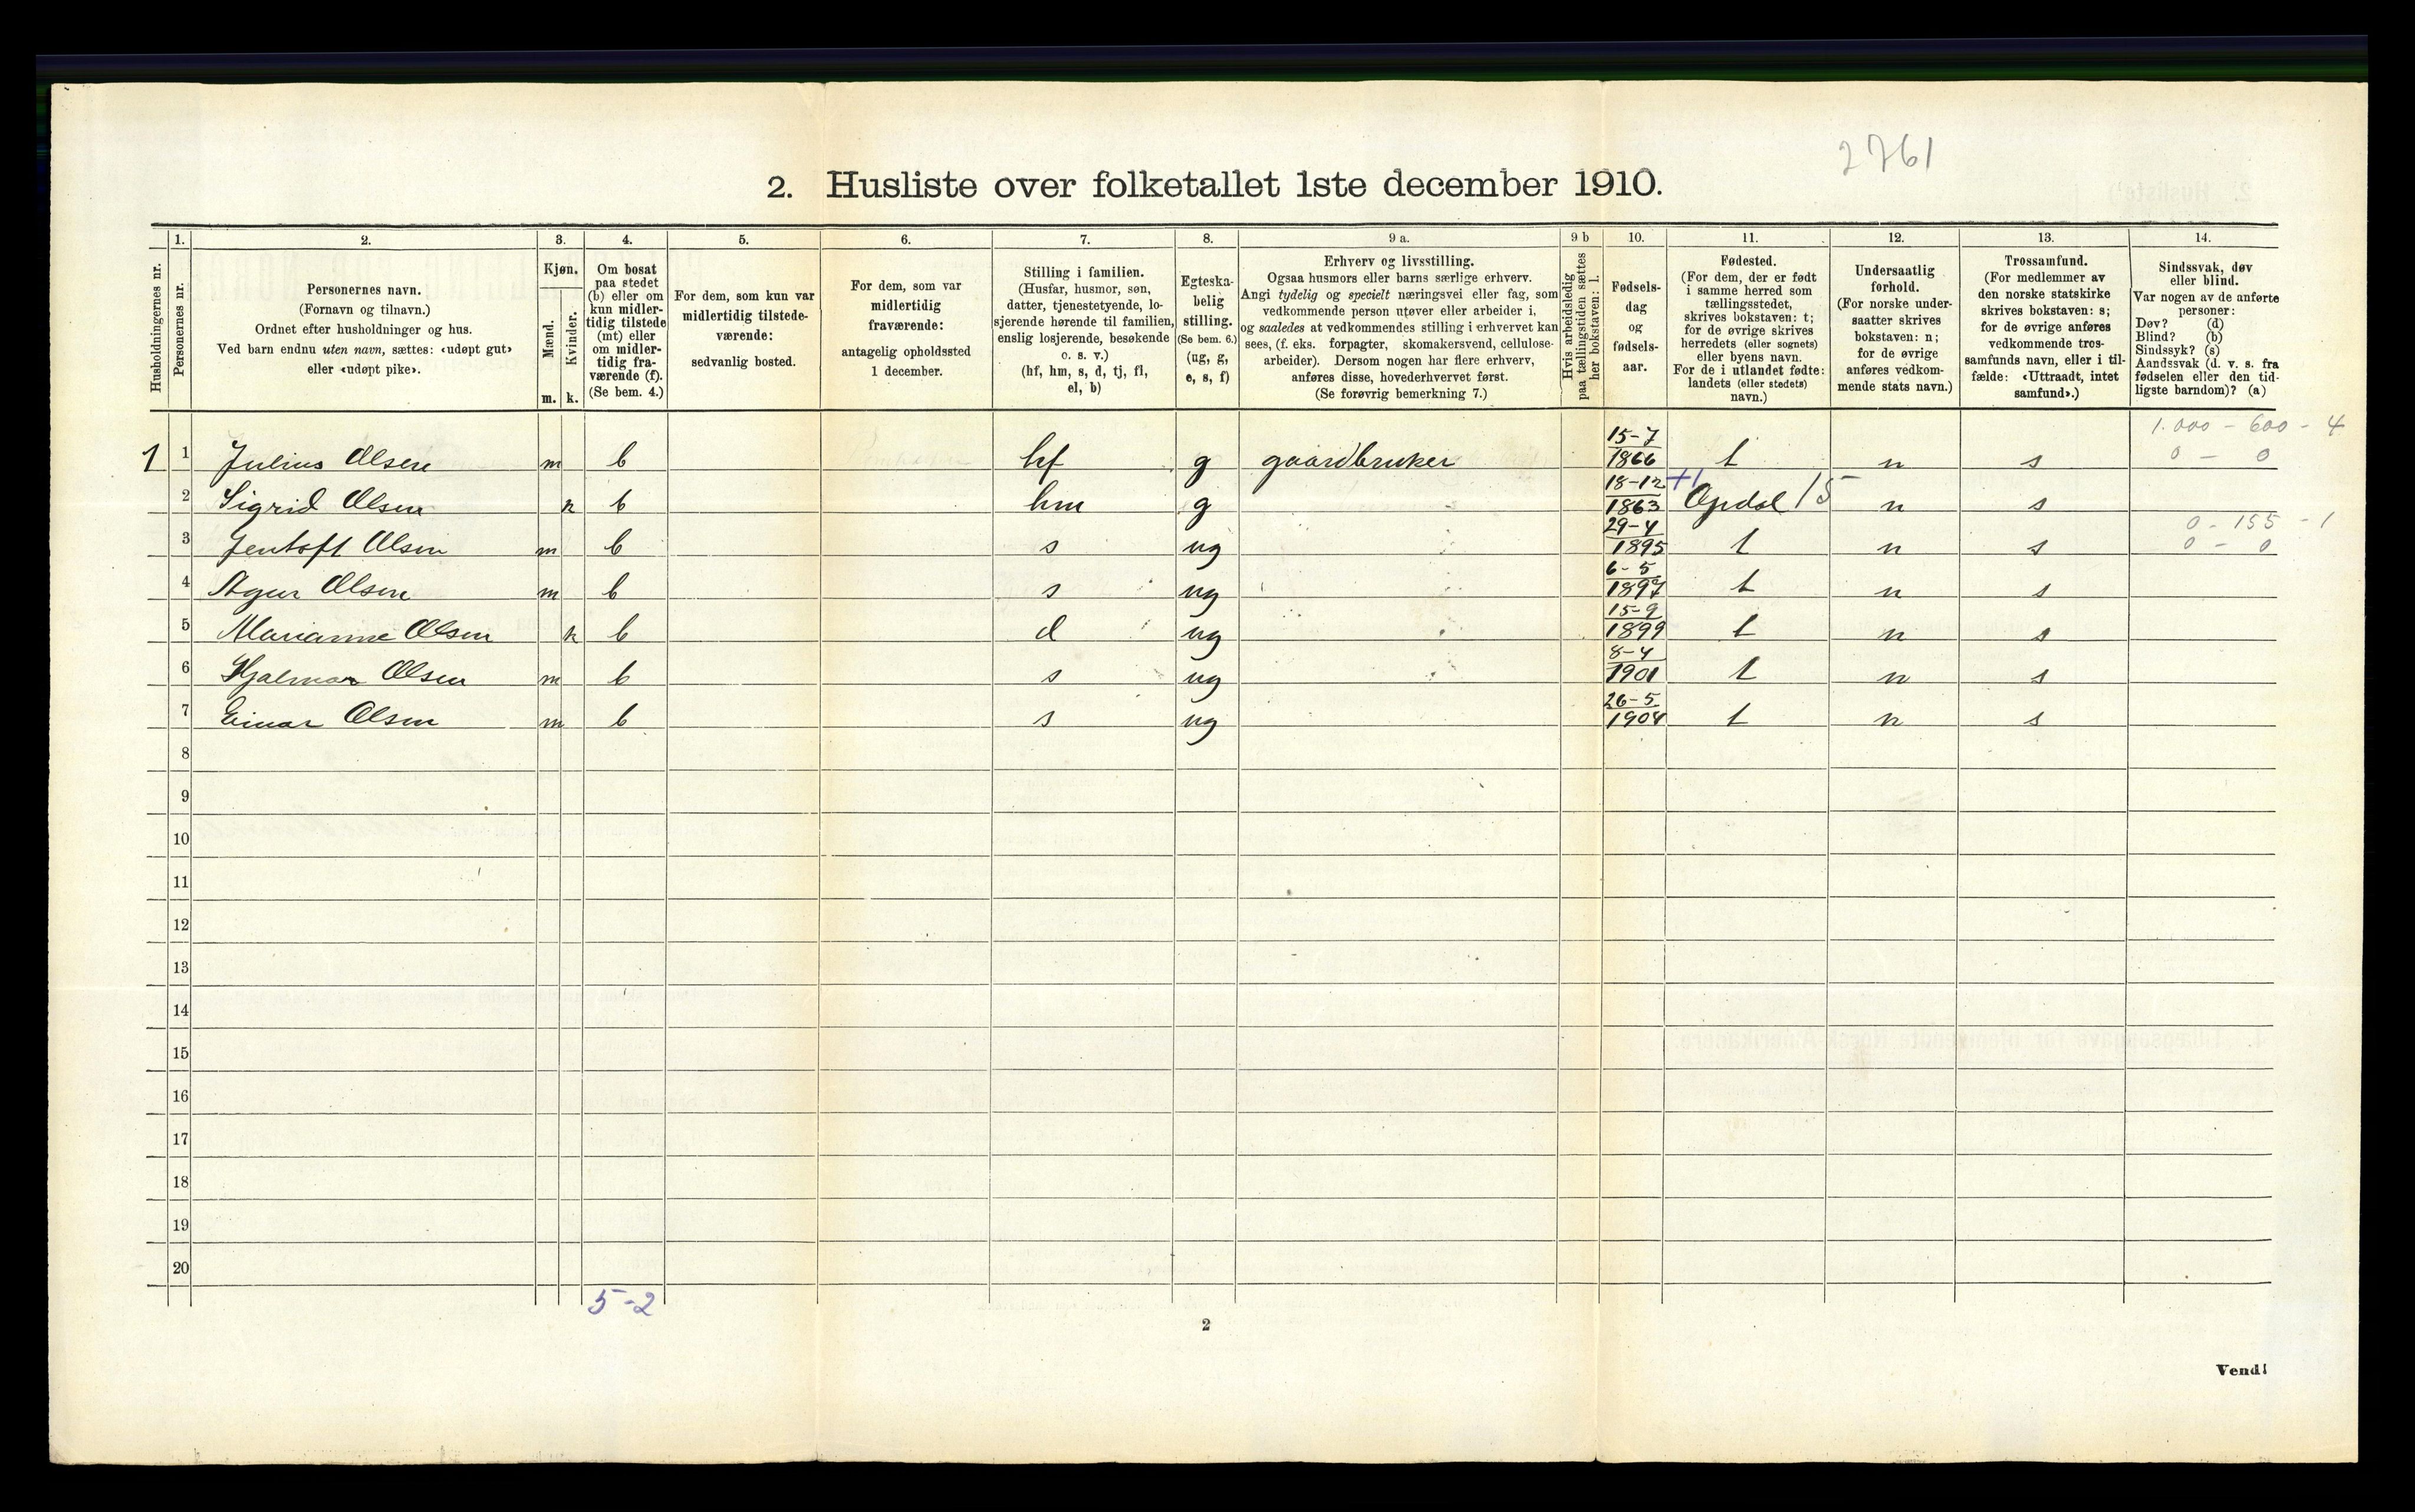 2761
2. Husliste over folketallet 1ste december 1910.
Husholdningernes nr.
1.
Personernes nr.
2.
Personernes navn.
(Fornavn og tilnavn.)
Ordnet efter husholdninger og hus.
Ved barn endnu uten navn, sættes: «udøpt gut»
eller «udøpt pike».
3.
Kjøn.
Mænd.
Kvinder.
m. k.
4.
Om bosat
paa stedet
(b) eller om
kun midler-
tidig tilstede
(mt) eller
om midler-
tidig fra-
værende (f).
(Se bem. 4.)
5.
For dem, som kun var
midlertidig tilstede-
værende:
sedvanlig bosted.
6.
For dem, som var
midlertidig
fraværende:
antagelig opholdssted
1 december.
7.
Stilling i familien.
(Husfar, husmor, søn,
datter, tjenestetyende, lo-
sjerende hørende til familien,
enslig losjerende, besøkende
o. s. v.)
(hf, hm, s, d, tj, fl,
el, b)
8.
Egteska-
belig
stilling.
(Se bem. 6.)
(ug, g,
e, s, f)
9 a.
Erhverv og livsstilling.
Ogsaa husmors eller barns særlige erhverv.
Angi tydelig og specielt næringsvei eller fag, som
vedkommende person utøver eller arbeider i,
og saaledes at vedkommendes stilling i erhvervet kan
sees, (f. eks. forpagter, skomakersvend, cellulose-
arbeider). Dersom nogen har flere erhverv,
anføres disse, hovederhvervet først.
(Se forøvrig bemerkning 7.)
9 b
Hvis arbeidsledig
paa tællingstiden sættes
her bokstaven: l.
10.
Fødsels-
dag
og
fødsels-
aar.
11.
Fødested.
(For dem, der er født
i samme herred som
tællingsstedet,
skrives bokstaven: t;
for de øvrige skrives
herredets (eller sognets)
eller byens navn.
For de i utlandet fødte:
landets (eller stedets)
navn.)
12.
Undersaatlig
forhold.
(For norske under-
saatter skrives
bokstaven: n;
for de øvrige
anføres vedkom-
mende stats navn.)
13.
Trossamfund.
(For medlemmer av
den norske statskirke
skrives bokstaven: s;
for de øvrige anføres
vedkommende tros-
samfunds navn, eller i til-
fælde: «Uttraadt, intet
samfund».)
14.
Sindssvak, døv
eller blind.
Var nogen av de anførte
personer:
Døv? (d)
Blind? (b)
Sindssyk? (s)
Aandssvak (d. v. s. fra
fødselen eller den tid-
ligste barndom)? (a)
1 1 Julius Olsen m b hf g gaardbruker 15-7 1866 t n s 1.000 - 600 - 4
0 - 0
2 Sigrid Olsen k b hm g 18-12 1863 Opdal 15 n s
3 Jentoft Olsen m b s ug 29-4 1895 t n s 0 - 155 - 1
0 - 0
4 Agur Olsen m b s ug 6-5 1897 t n s
5 Marianne Olsen k b d ug 15-9 1899 t n s
6 Hjalmar Olsen m b s ug 8-4 1901 t n s
7 Einar Olsen m b s ug 26-5 1904 t n s
8
9
10
11
12
13
14
15
16
17
18
19
20
5-2
2
Vend!